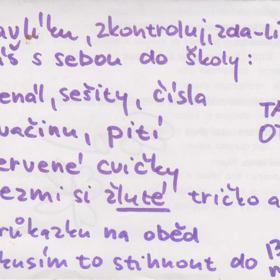 avlíku, zkontroluj, zda-li
íš s sebou do školy:
enál, sešity, čísla
vačinu, pití
ervené cvičky
ezmi si žluté tričko a
růkazku na oběd
kusím to stihnout do